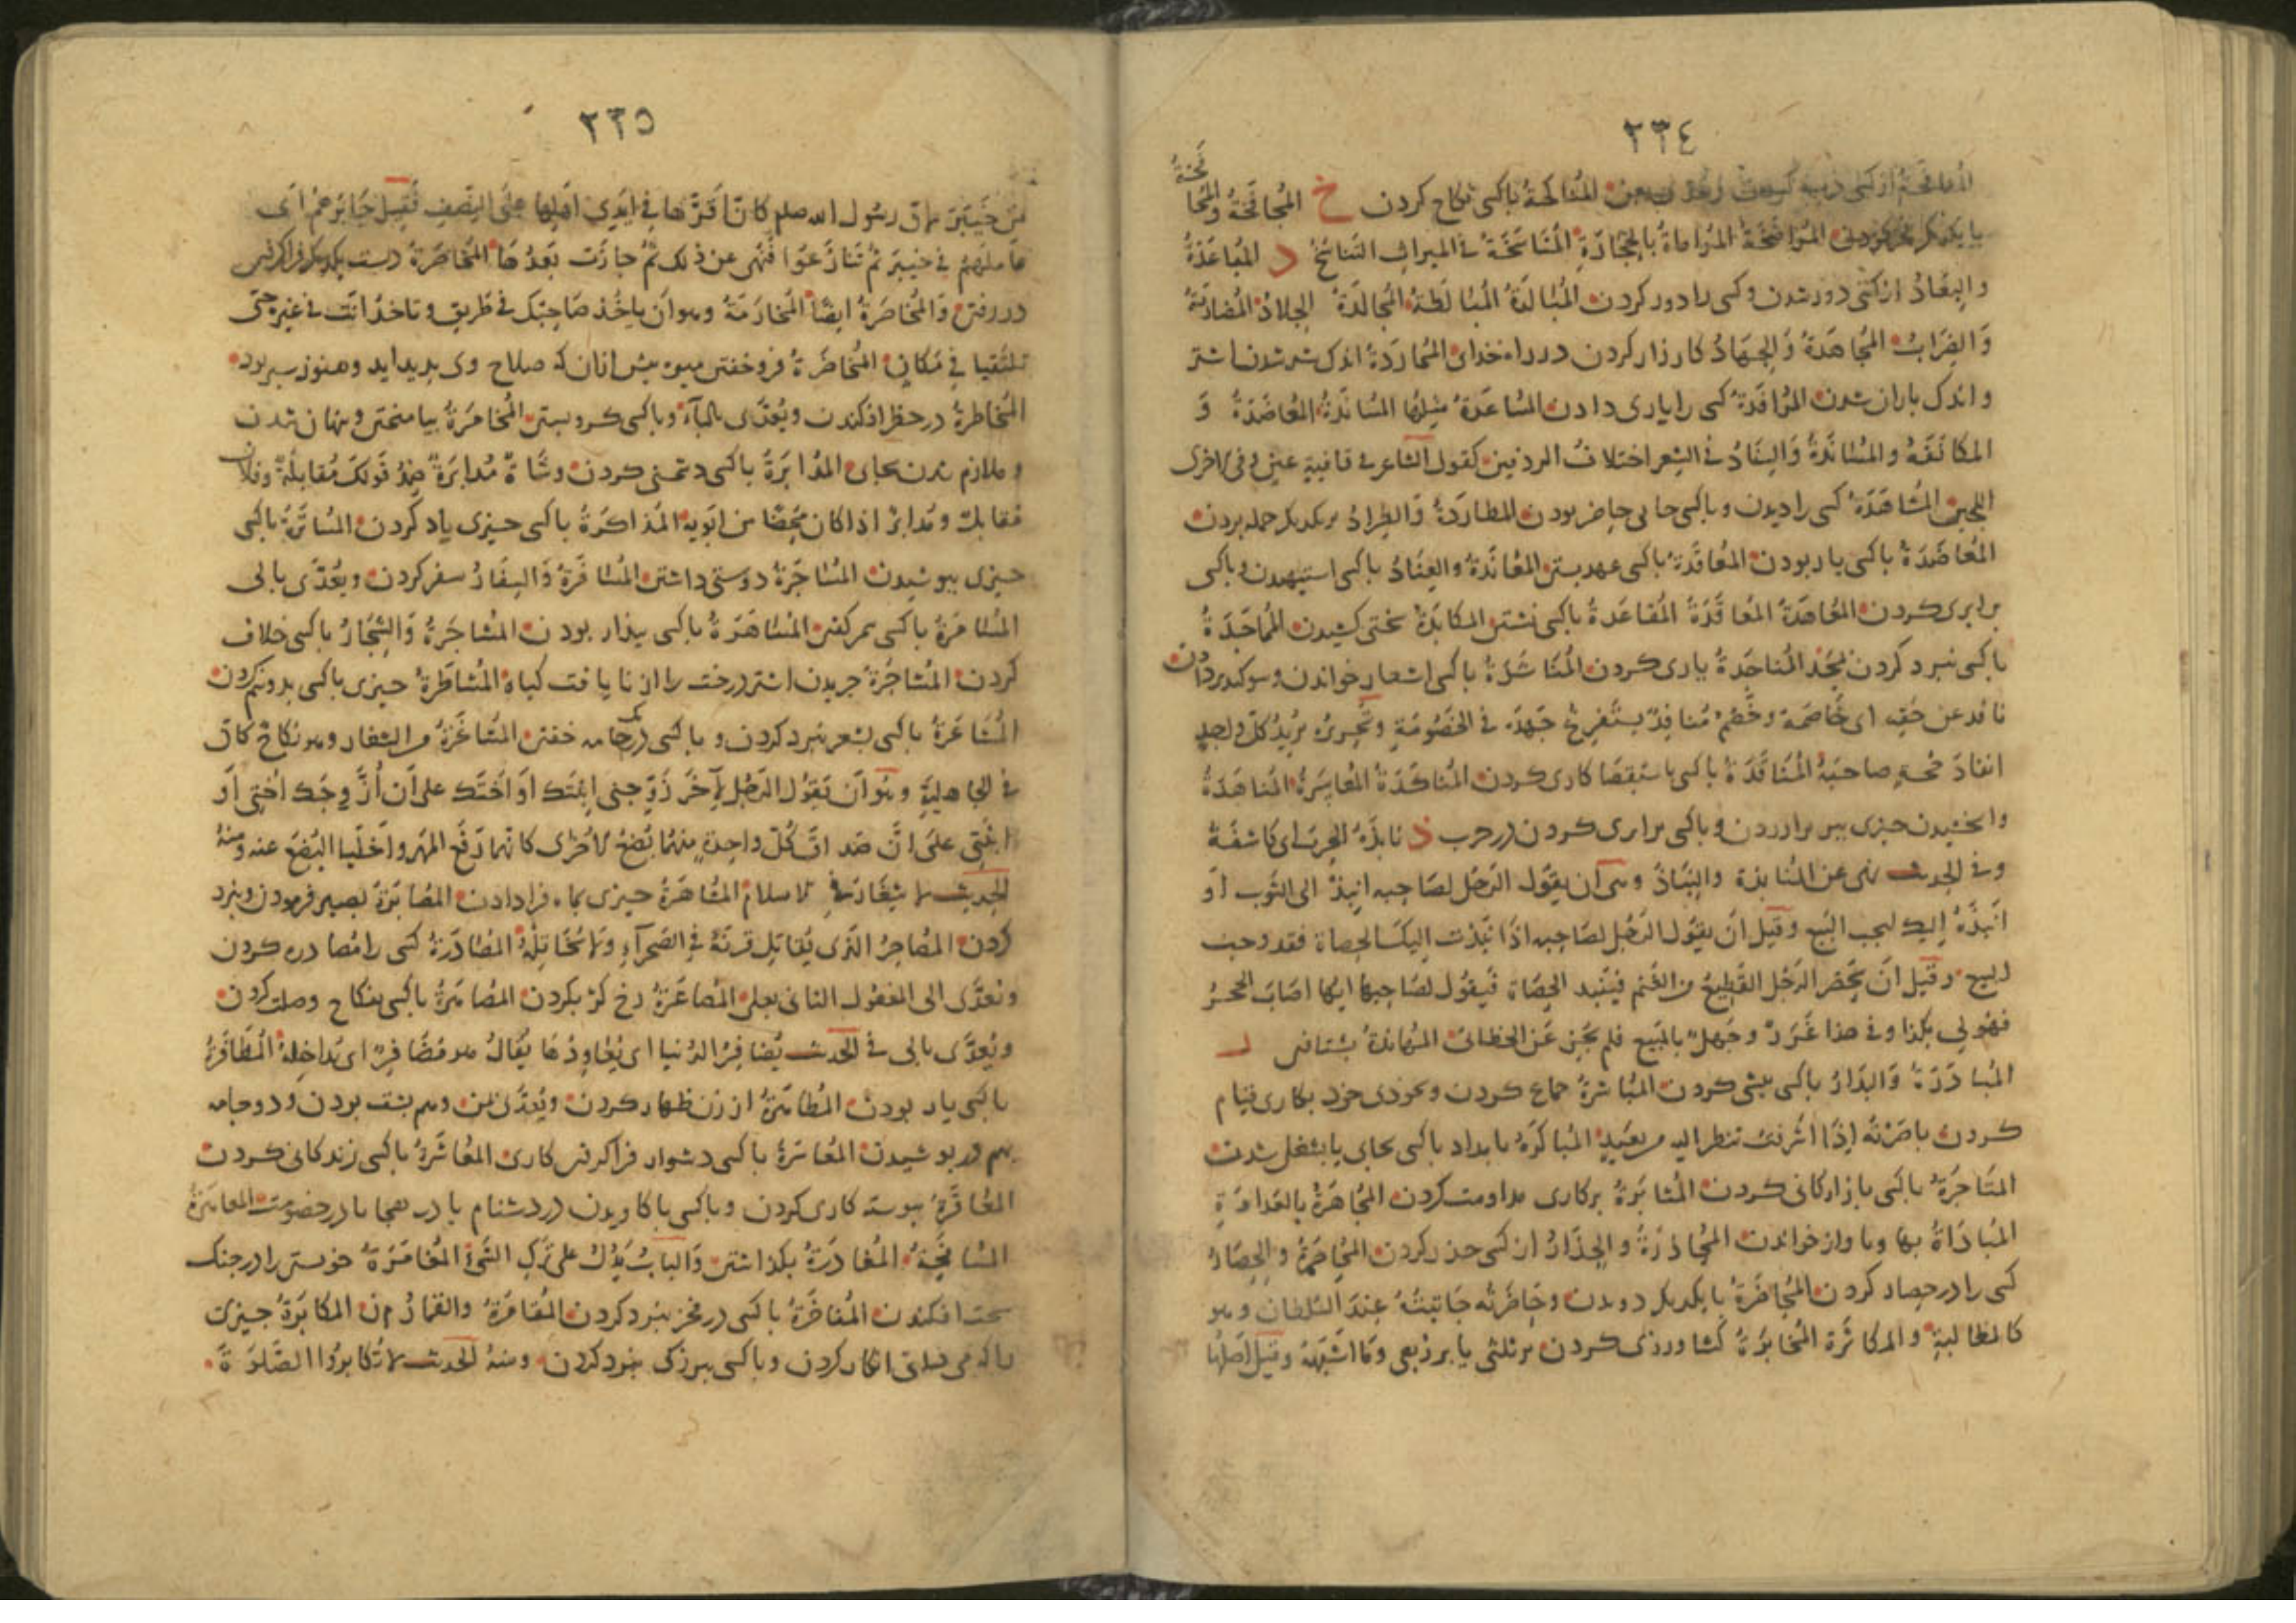 ٢٣٤
المناكحة باكسى نكاح كردن خ المجافخة والمحا
فخة
با يكديگر فخر كردن المواضخة المراماة بالحجارة المناسخة فى الميراث التناسخ د المباعدة
والبعاد از كسى دور شدن وكسى را دور كردن المبالدة المبالطة المجالدة الجلاد المضاربة
والضراب المجاهدة والجهاد كارزار كردن در راه خداى المحاردة اندك شير شدن اشتر
واندك باران شدن المرافدة كسى را يارى دادن المساعدة مثلها المساندة المعاضدة و
المكانفة والمساندة والسناد فى الشعر اختلاف الردفين كقول الشاعر فى قافية عين وفى الاخرى
اللجين المشاهدة كسى را ديدن وباكسى جايى حاضر بودن المطاردة والطراد بر يكديگر حمله بردن
المعاضدة باكسى يار بودن المعاقدة باكسى عهد بستن المعاندة والعناد باكسى استيهيدن وباكسى
برابرى كردن المعاهدة المعاقدة المقاعدة باكسى نشستن المكابدة سختى كشيدن المماجدة
باكسى نبرد كردن بمجد المناجدة يارى كردن المناشدة باكسى اشعار خواندن وسوكند بر دادن
نافد عن حقه اى خاصمه وخصم منافد يستفرغ جهده فى الخصومة وتحريره يريد كل واحد
انفاد حجة صاحبه المناقدة باكسى باستقصا كارى كردن المناكدة المعاسرة المناهدة
وابخشيدن چيزى بيرون آوردن وباكسى برابرى كردن در حرب ذ نابذه الحرب اى كاشفه
وفى الحديث نهى عن المنابذة والنباذ وهى ان يقول الرجل لصاحبه انبذ الى الثوب او
انبذه اليك ليجب البيع وقيل ان يقول الرجل لصاحبه اذا نبذت اليك الحصاة فقد وجب
البيع وقيل ان يحضر الرجل القطيع من الغنم فينبذ الحصاة فيقول لصاحبها ايها اصاب الحجر
فهو لى بكذا وفى هذا غرر وجهل بالمبيع فلم يجز عن الخطابى المهابذة بشتافتن ر
المبادرة والبدار باكسى پيشى كردن المباشرة جماع كردن وبخودى خود بكارى قيام
كردن باصرته اذا اشرفت تنظر اليه من بعيد المباكرة بامداد باكسى بجايى يا بشغلى شدن
المتاجرة باكسى بازاركانى كردن المثابرة بر كارى مداومت كردن المجاهرة بالعداوة
المباداة بها وباواز خواندن المحاذرة والحذار از كسى حذر كردن المحاصرة والحصار
كسى را در حصار كردن المحاضرة با يكديگر دويدن وحاضرته جاثيته عند السلطان وهو
كالمغالبة والمكاثرة المخابرة كشاورزى كردن بر ثلثى يا بر ربعى وما اشبهه وقيل اصلها
٢٣٥
من خيبر لان رسول الله صلعم كان اقرها فى ايدى اهلها على النصف فقيل خابرهم اى
عاملهم فى خيبر ثم تنازعوا فنهى عن ذلك ثم جازت بعدها المخاصرة دست يكديگر فرا گرفتن
در رفتن والمخاصرة ايضا المخازمة وهو ان ياخذ صاحبك فى طريق وتاخذ انت فى غيره حتى
تلتقيا فى مكان المخاضرة فروختن ميوه پيش از ان كه صلاح وى پديد ايد وهنوز سبز بود
المخاطرة در خطر افكندن ويعدى بالباء وباكسى گرو بستن المخامرة بياميختن وپنهان شدن
وملازم شدن بجاى المدابرة باكسى دشمنى كردن وشاة مدابرة ضد قولك مقابلة وفلان
مقابل ومدابر اذا كان محضا من ابويه المذاكرة باكسى چيزى ياد كردن المساترة باكسى
چيزى بپوشيدن المساجرة دوستى داشتن المسافرة والسفار سفر كردن ويعدى بالى
المسامرة باكسى سمر گفتن المساهرة باكسى بيدار بودن المشاجرة والشجار باكسى خلاف
كردن المشاجرة چريدن اشتر درخت را از نا يافت گياه المشاطرة چيزى باكسى بدو نيم كردن
المشاعرة باكسى بشعر نبرد كردن وباكسى در يك جامه خفتن المشاغرة من الشغار وهو نكاح كان
فى الجاهلية وهو ان يقول الرجل لآخر زوجنى ابنتك او اختك على ان ازوجك اختى او
ابنتى على ان صداق كل واحدة منهما بضع الاخرى كانهما رفعا المهر واخليا البضع عنه ومنه
الحديث لا شغار فى الاسلام المشاهرة چيزى بماه فرا دادن المصابرة بصبر فرمودن ونبرد
كردن المصاحر الذى يقاتل قرنه فى الصحراء ولا يخاتله المصادرة كسى را مصادره كردن
وتعدى الى المفعول الثانى بعلى المصاعرة رخ كژ بكردن المصاهرة باكسى بنكاح وصلت كردن
ويعدى بالى فى الحديث يضافر الدنيا اى يعاودها يقال هو مضافر اى مداخله المظافرة
باكسى يار بودن المظاهرة از زن ظهار كردن ويعدى بمن وهم پشت بودن ودو جامه
بهم در پوشيدن المعاسرة باكسى دشوار فرا گرفتن كارى المعاشرة باكسى زندكانى كردن
المعاقرة پيوسته كارى كردن وباكسى باكاويدن در دشنام يا در هجا يا در خصومت المعاهرة
المسافحة المغادرة بگذاشتن والباب يدل على ترك الشىء المغامرة خويشتن را در جنگ
سخت افكندن المفاخرة باكسى در فخر نبرد كردن المقامرة والقمار م ن المكابرة چيزى
را كه مى دانى انكار كردن وباكسى ببزرگى نبرد كردن ومنه الحديث لا تكابروا الصلوة